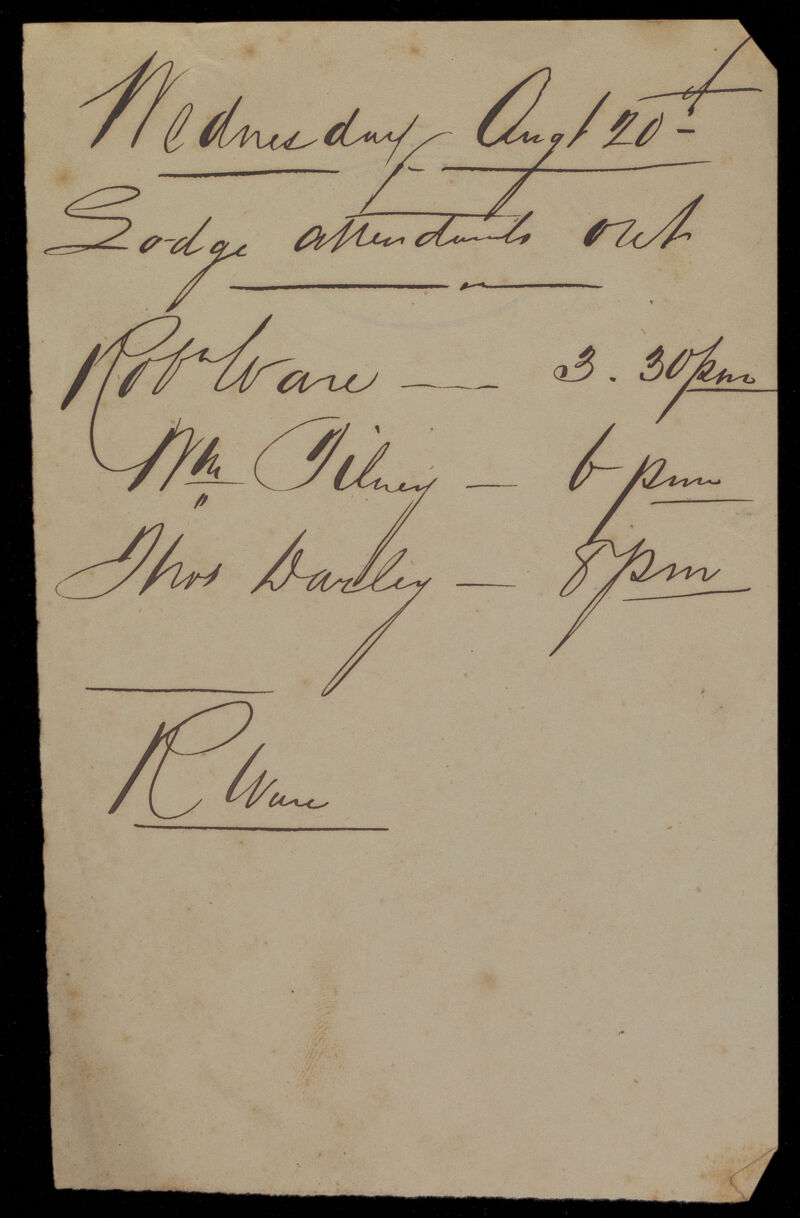 Wednesday Augt 20th
Lodge attendants out
Robn Ware — 3.30pm
Wm Tilney — 6 pm
Thos Darley — 8 pm
R Ware